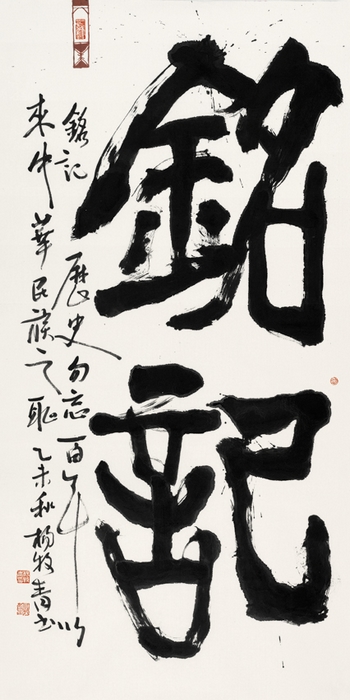 銘記
銘記歷史勿忘百年以
來中華民族之恥乙未秋楊牧青書